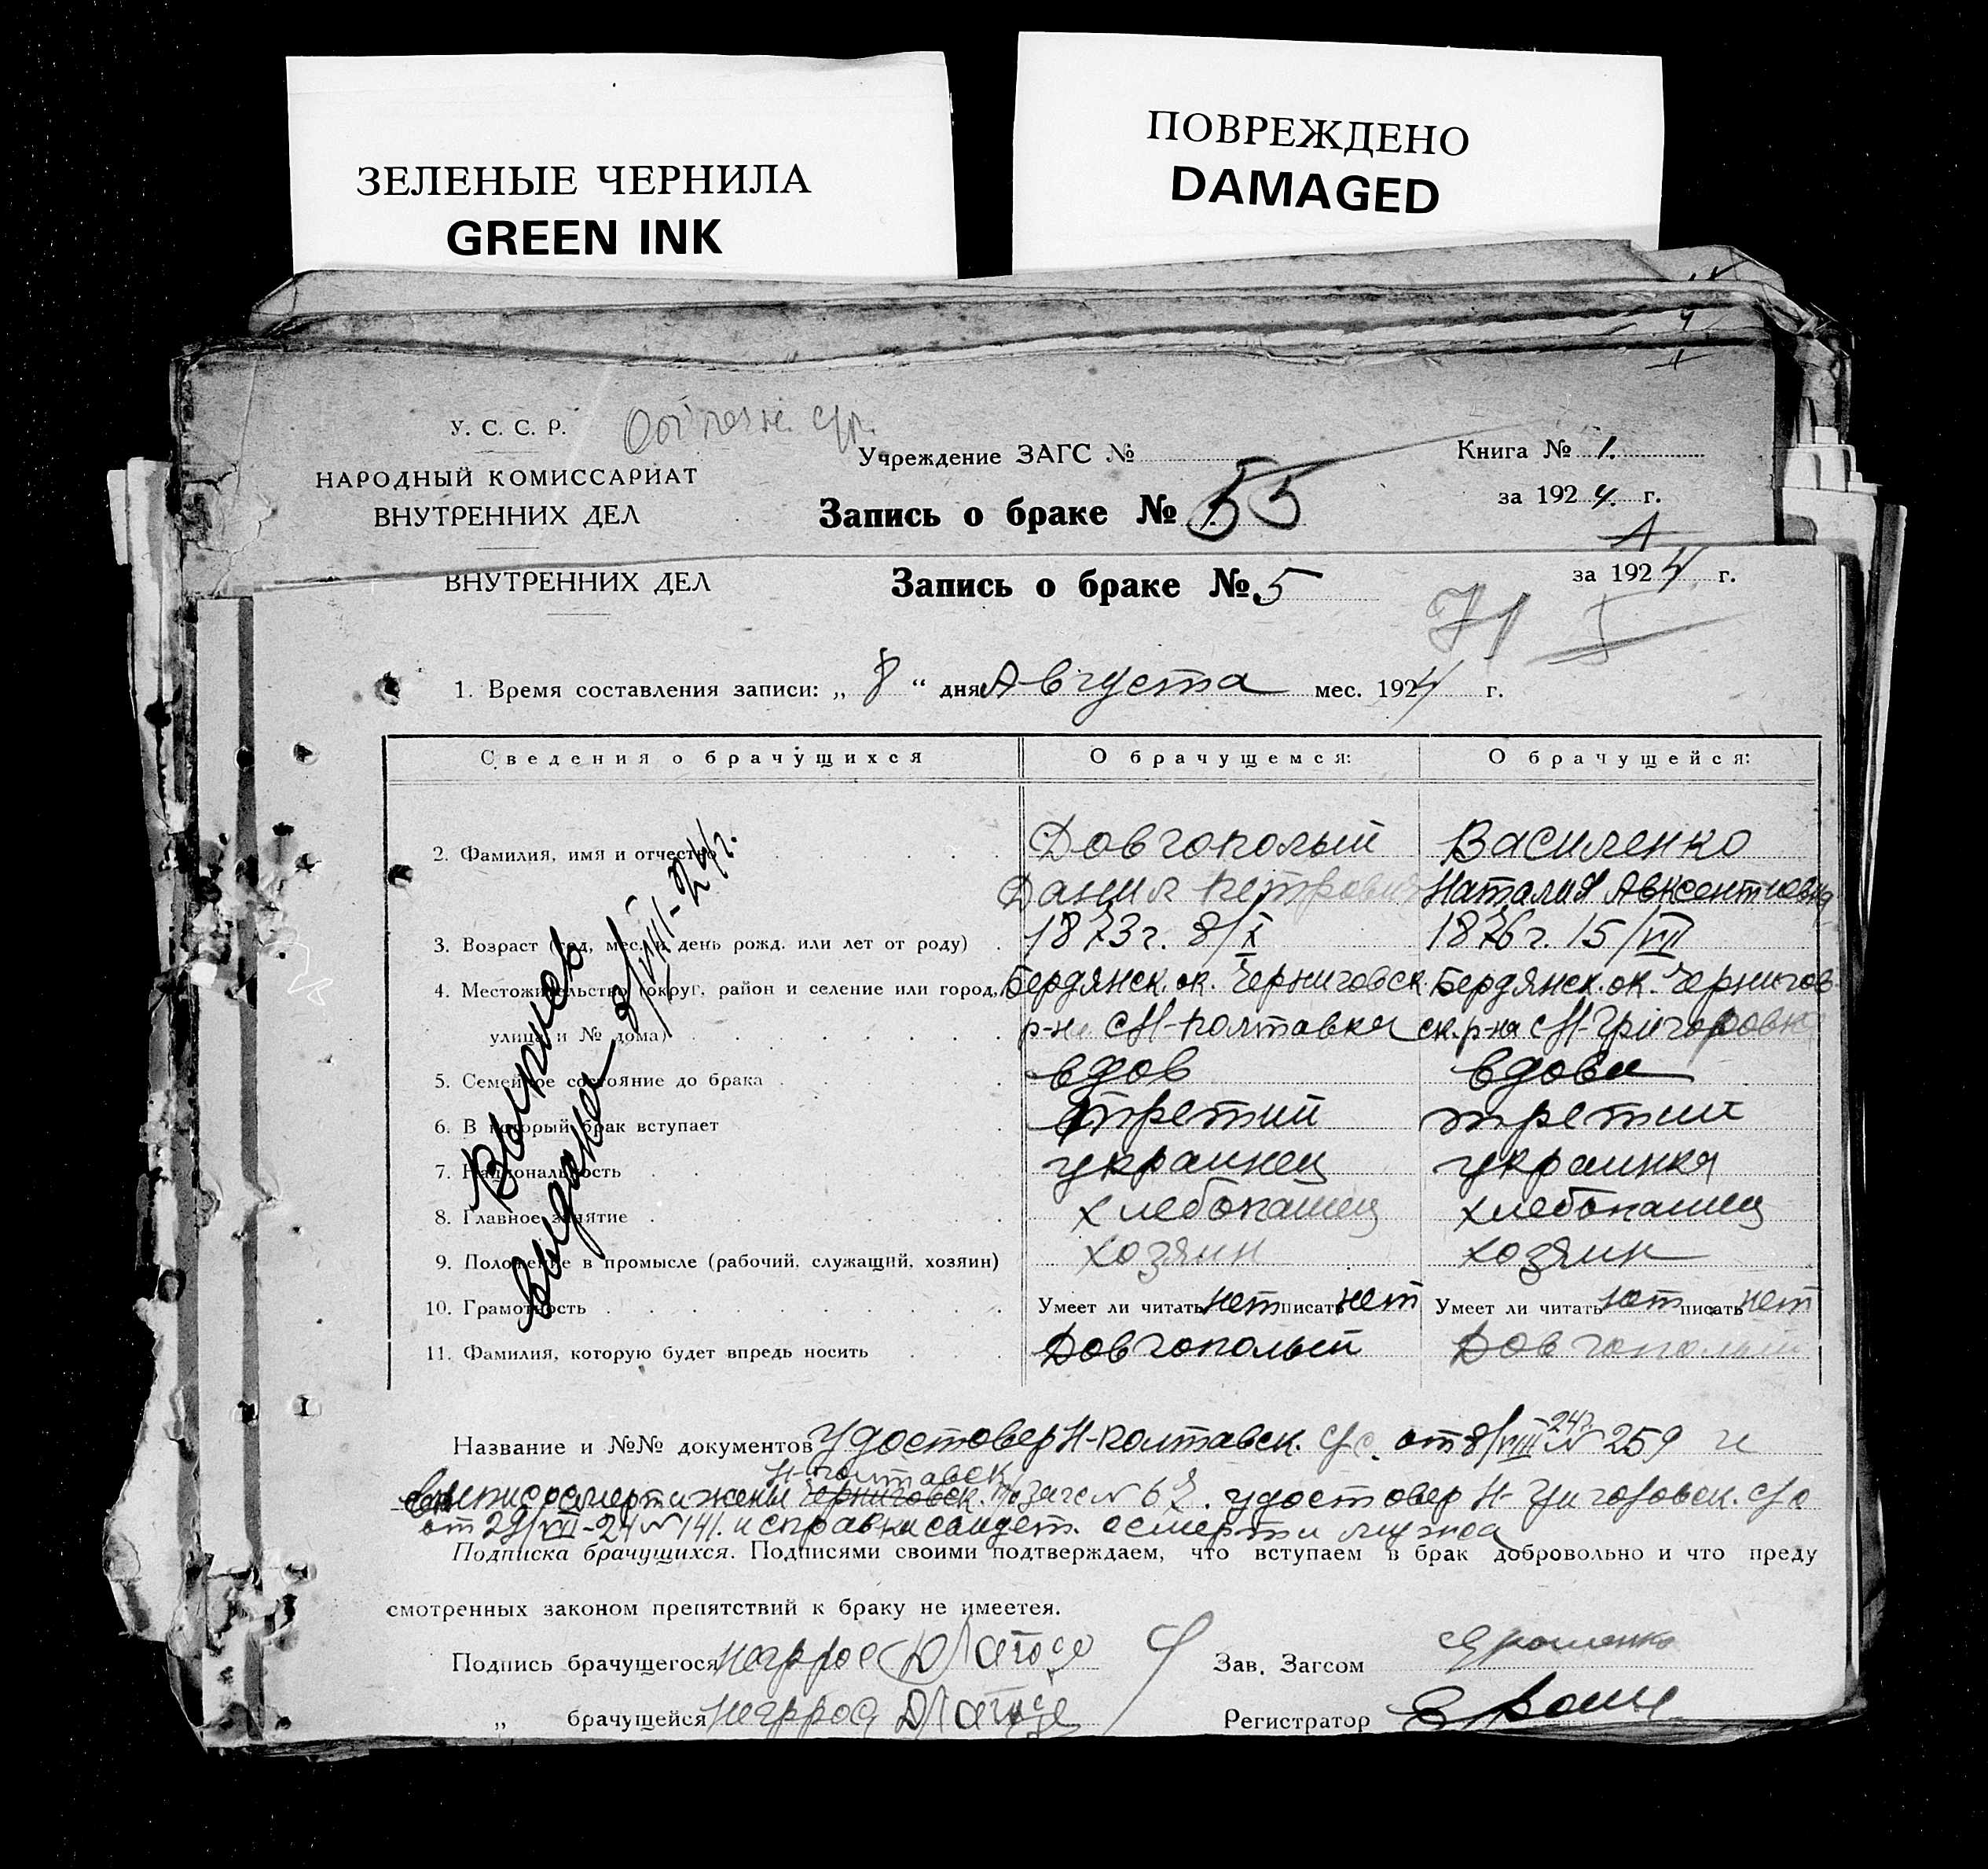 ЗЕЛЕНЫЕ ЧЕРНИЛА
GREEN INK
ПОВРЕЖДЕНО
DAMAGED
У. С. С. Р.
НАРОДНЫЙ КОМИССАРИАТ
ВНУТРЕННИХ ДЕЛ
Учреждение ЗАГС №
Книга № 1.
Запись о браке № 55
за 1924 г.
ВНУТРЕННИХ ДЕЛ
Запись о браке № 5
за 1924 г.
71
1. Время составления записи: „ 8 “ дня Августа мес. 1924 г.
Сведения о брачущихся О брачущемся: О брачущейся:
2. Фамилия, имя и отчество Довгополый Василенко
Данил Петрович Наталия Авксентиевна
3. Возраст (год, мес. и день рожд. или лет от роду) 1873 г. 8/X 1876 г. 15/VIII
4. Местожительство (округ, район и селение или город, Бердянск. ок. Черниговск. Бердянск. ок. Чернигов
улица и № дома) р-на с Н-Полтавка ск. р-на с Н-Григоровка
5. Семейное состояние до брака вдов вдова
6. В который брак вступает третий третий
7. Национальность украинец украинка
8. Главное занятие хлебопашец хлебопашец
9. Положение в промысле (рабочий, служащий, хозяин) хозяин хозяин
10. Грамотность Умеет ли читать нет писать нет Умеет ли читать нет писать нет
11. Фамилия, которую будет впредь носить Довгополый Довгополый
Выпись
выдана 8/VIII-24 г.
Название и №№ документов Удостовер Н-Полтавск. с/с. от 8/VIII 24г. № 259 и
Н-Полтавск.
о смерти жены Черниговск. № 67. удостовер Н-Григоровск. с/с
от 29/VII-24 № 141. и справки свидет. о смерти мужа
Подписка брачущихся. Подписями своими подтверждаем, что вступаем в брак добровольно и что преду
смотренных законом препятствий к браку не имеетея.
Подпись брачущегося
Зав. Загсом Ярошенко
„ брачущейся
Регистратор